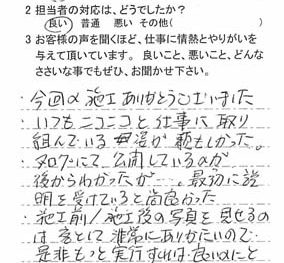 2 担当者の対応は、どうでしたか？
良い 普通 悪い その他( )
3 お客様の声を聞くほど、仕事に情熱とやりがいを
与えて頂いています。 良いこと、悪いこと、どんな
ささいな事でもぜひ、お聞かせ下さい。
・今回の施工ありがとうございました
・いつもニコニコと仕事に取り
組んでいる 姿が 頼もしかった。
にて 公開しているのが
後からわかったが…。最初に説
明を受けていると尚良かった
・施工前／施工後の写真を見せるの
は 客として 非常にありがたいので
是非もっと実行すれば 良い